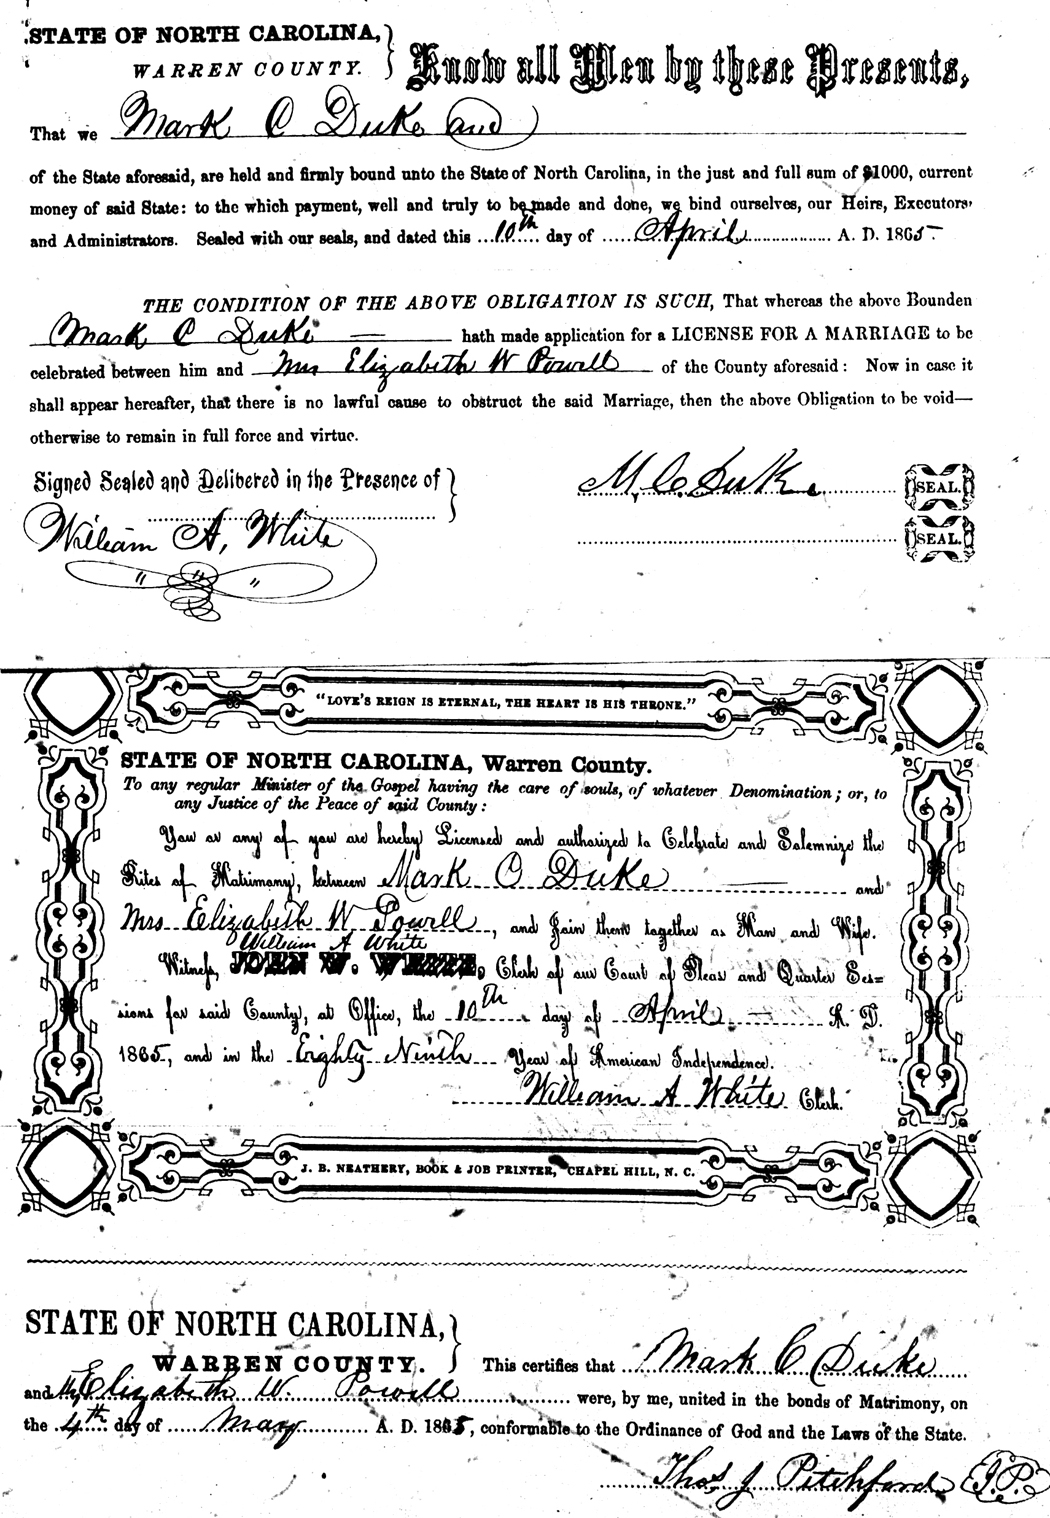 STATE OF NORTH CAROLINA,
WARREN COUNTY.
Know all Men by these Presents,
That we Mark C Duke and
of the State aforesaid, are held and firmly bound unto the State of North Carolina, in the just and full sum of $1000, current
money of said State: to the which payment, well and truly to be made and done, we bind ourselves, our Heirs, Executors
and Administrators. Sealed with our seals, and dated this 10th day of April A. D. 1865
THE CONDITION OF THE ABOVE OBLIGATION IS SUCH, That whereas the above Bounden
Mark C Duke hath made application for a LICENSE FOR A MARRIAGE to be
celebrated between him and Mrs Elizabeth W Powell of the County aforesaid: Now in case it
shall appear hereafter, that there is no lawful cause to obstruct the said Marriage, then the above Obligation to be void—
otherwise to remain in full force and virtue.
Signed Sealed and Delibered in the Presence of
M. C. Duke SEAL.
William A, White
SEAL.
"LOVE'S REIGN IS ETERNAL, THE HEART IS HIS THRONE."
STATE OF NORTH CAROLINA, Warren County.
To any regular Minister of the Gospel having the care of souls, of whatever Denomination; or, to
any Justice of the Peace of said County:
You or any of you are hereby Licensed and authorized to Celebrate and Solemnize the
Rites of Matrimony, between Mark C Duke and
Mrs Elizabeth W Powell, and Join them together as Man and Wife.
William A White
Witness, JOHN W. WHITE, Clerk of our Court of Pleas and Quarter Ses=
sions for said County, at Office, the 10th day of April A. D.
1865, and in the Eighty Ninth Year of American Independence.
William A White Clerk.
J. B. NEATHERY, BOOK & JOB PRINTER, CHAPEL HILL, N. C.
STATE OF NORTH CAROLINA,
WARREN COUNTY.
This certifies that Mark C Duke
and Elizabeth W. Powell were, by me, united in the bonds of Matrimony, on
the 4th day of May A. D. 1865, conformable to the Ordinance of God and the Laws of the State.
Thos J Pitchford J.P.